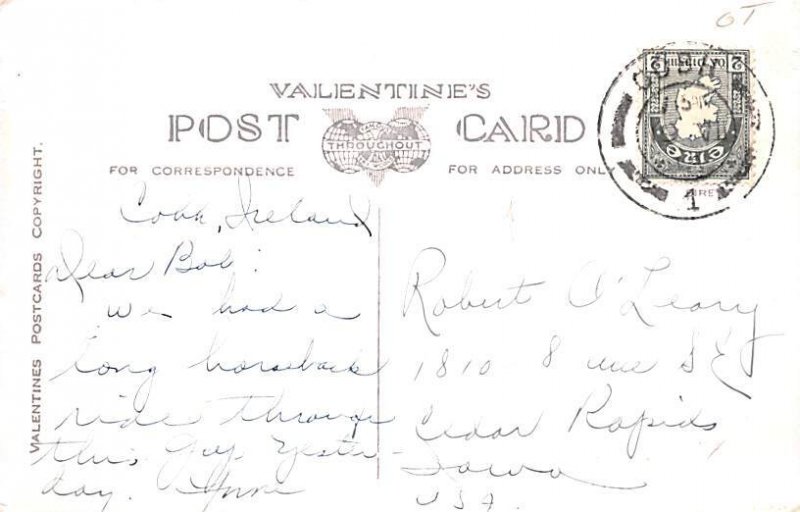 OT
VALENTINE'S
POST CARD
THROUGHOUT
FOR CORRESPONDENCE
FOR ADDRESS ONLY
VALENTINES POSTCARDS COPYRIGHT.
2 2
éire
COBH
1
Cobh, Ireland
Dear Bob:
We had a
long horseback
ride through
this Gap Yester-
day.
Robert O'Leary
1810 8 ave SE
Cedar Rapids
Iowa
USA.